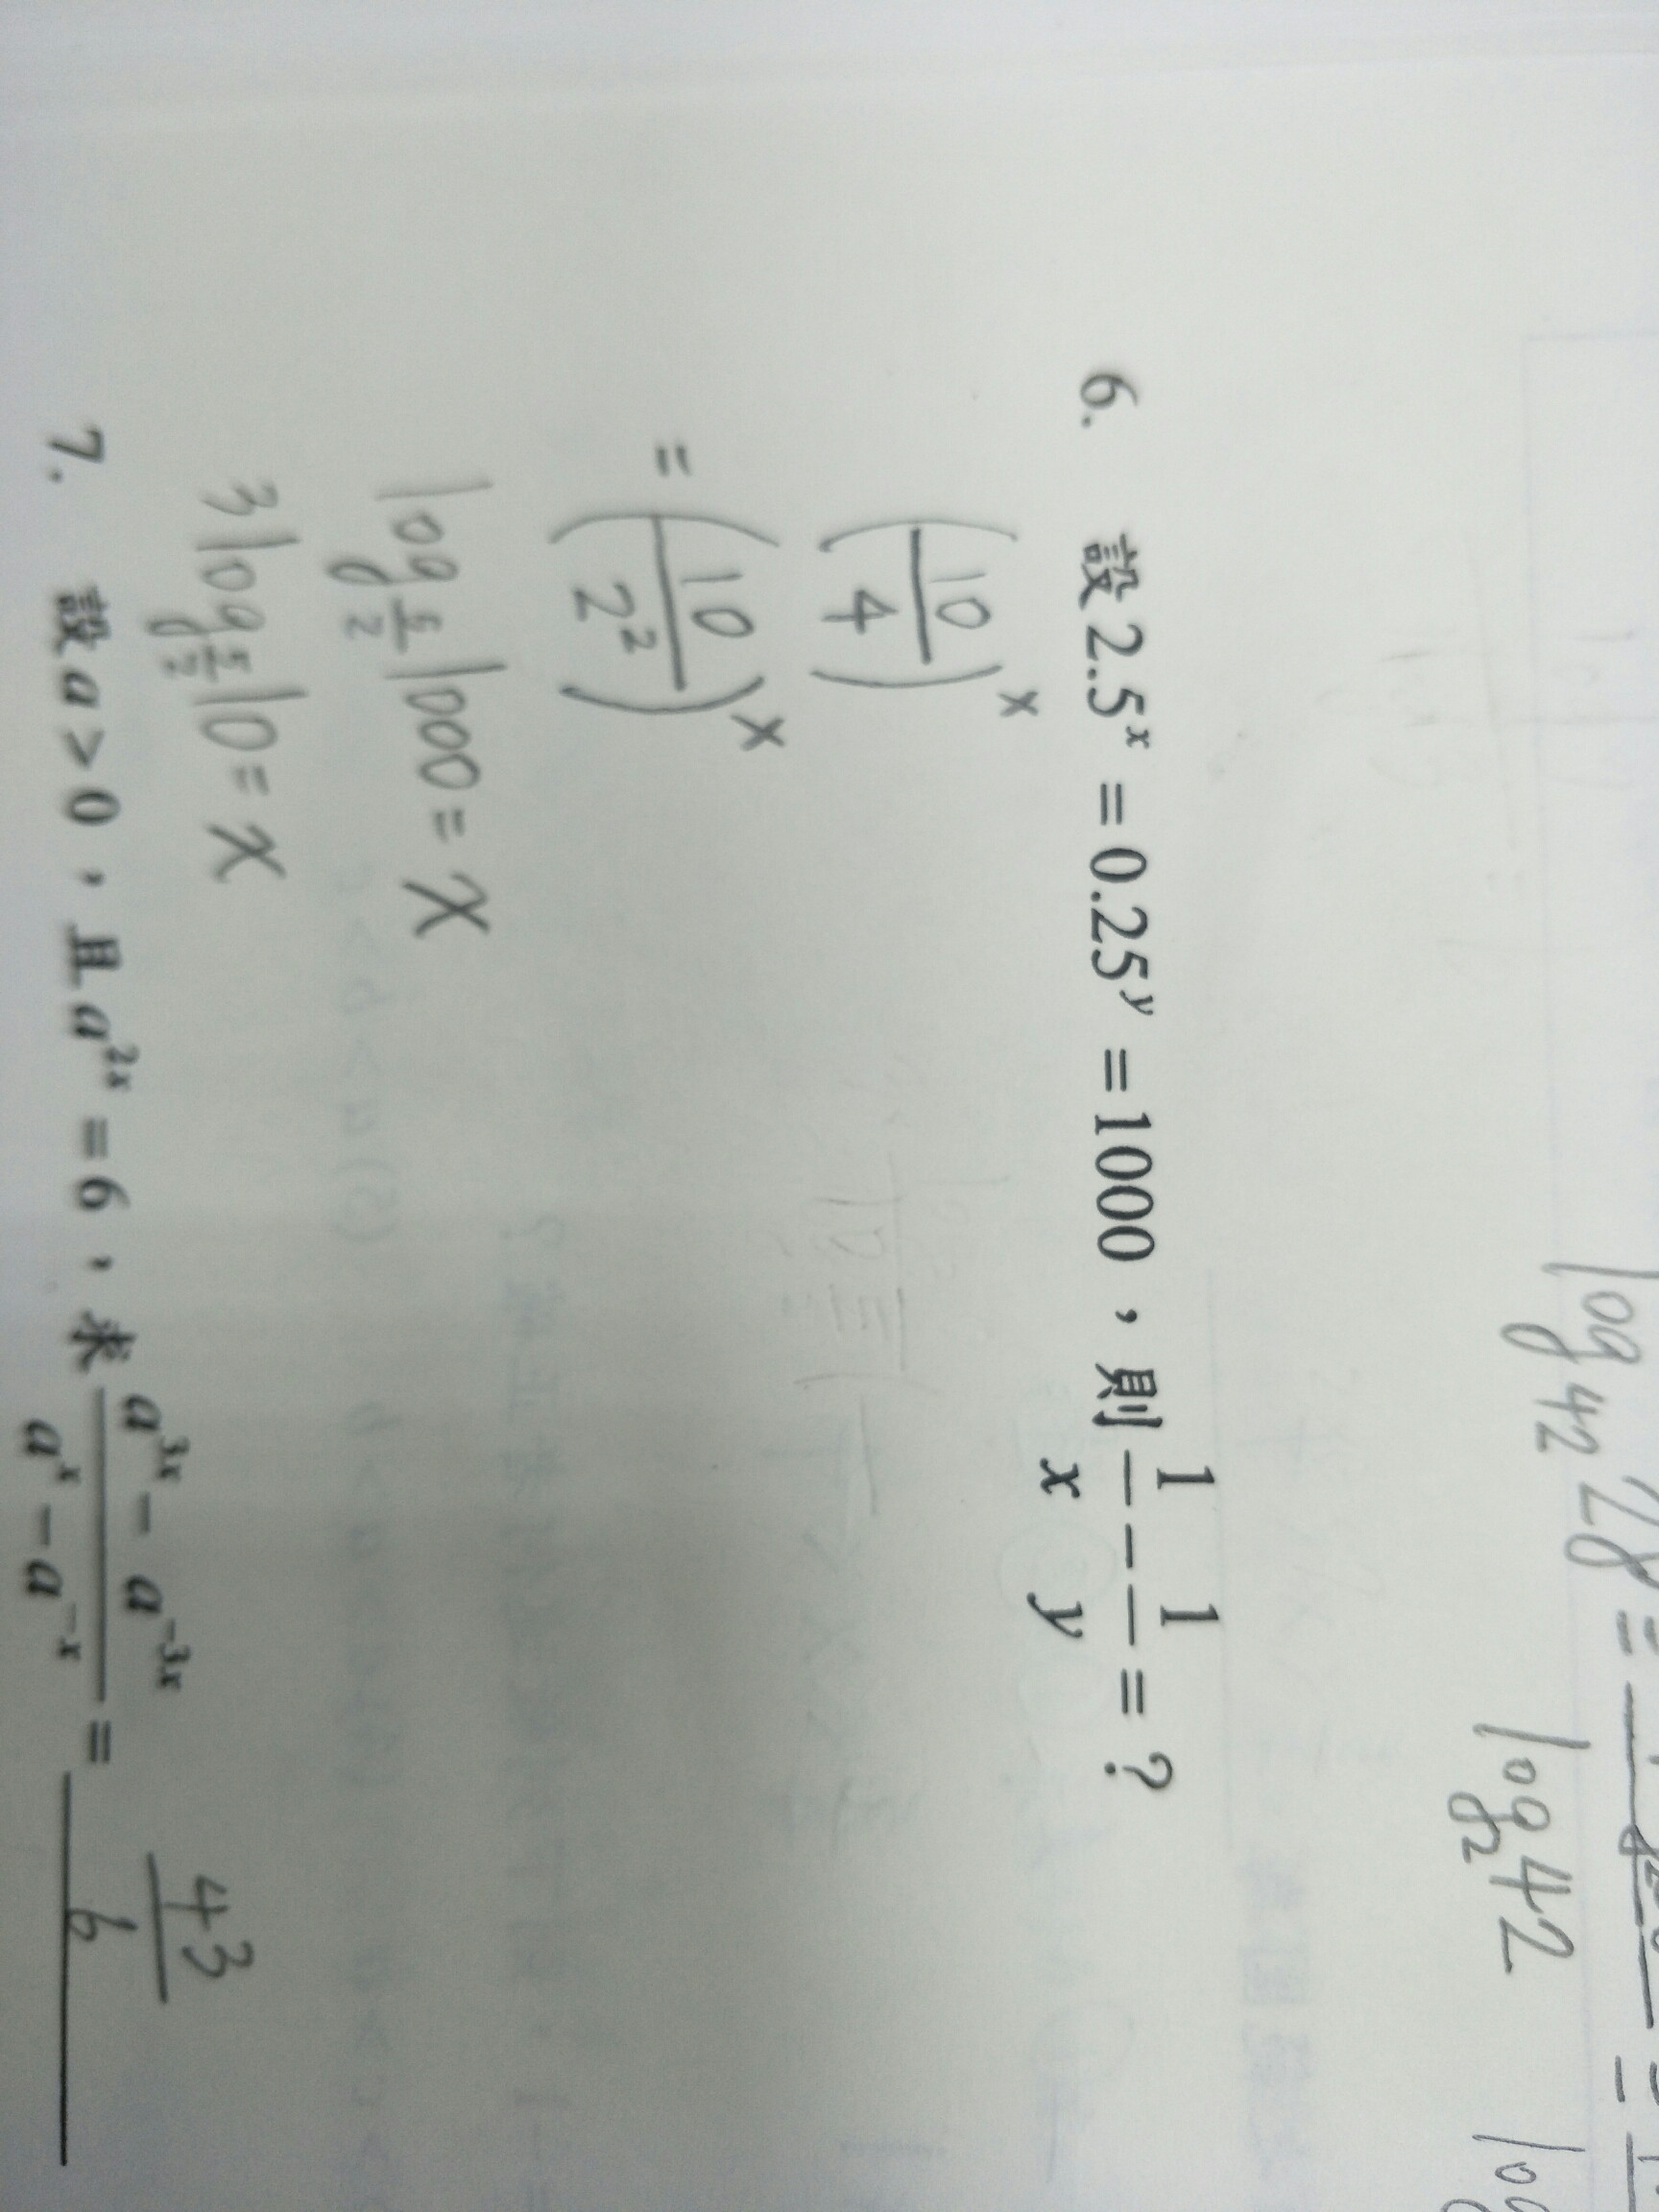 log₄₂28 =
log₂42
6. 設 2.5ˣ = 0.25ʸ = 1000，則 1/x − 1/y = ?
(10/4)ˣ
= (10/2²)ˣ
log_(5/2) 1000 = x
3 log_(5/2) 10 = x
7. 設 a > 0，且 a²ˣ = 6，求 (a³ˣ − a⁻³ˣ)/(aˣ − a⁻ˣ) = 43/6